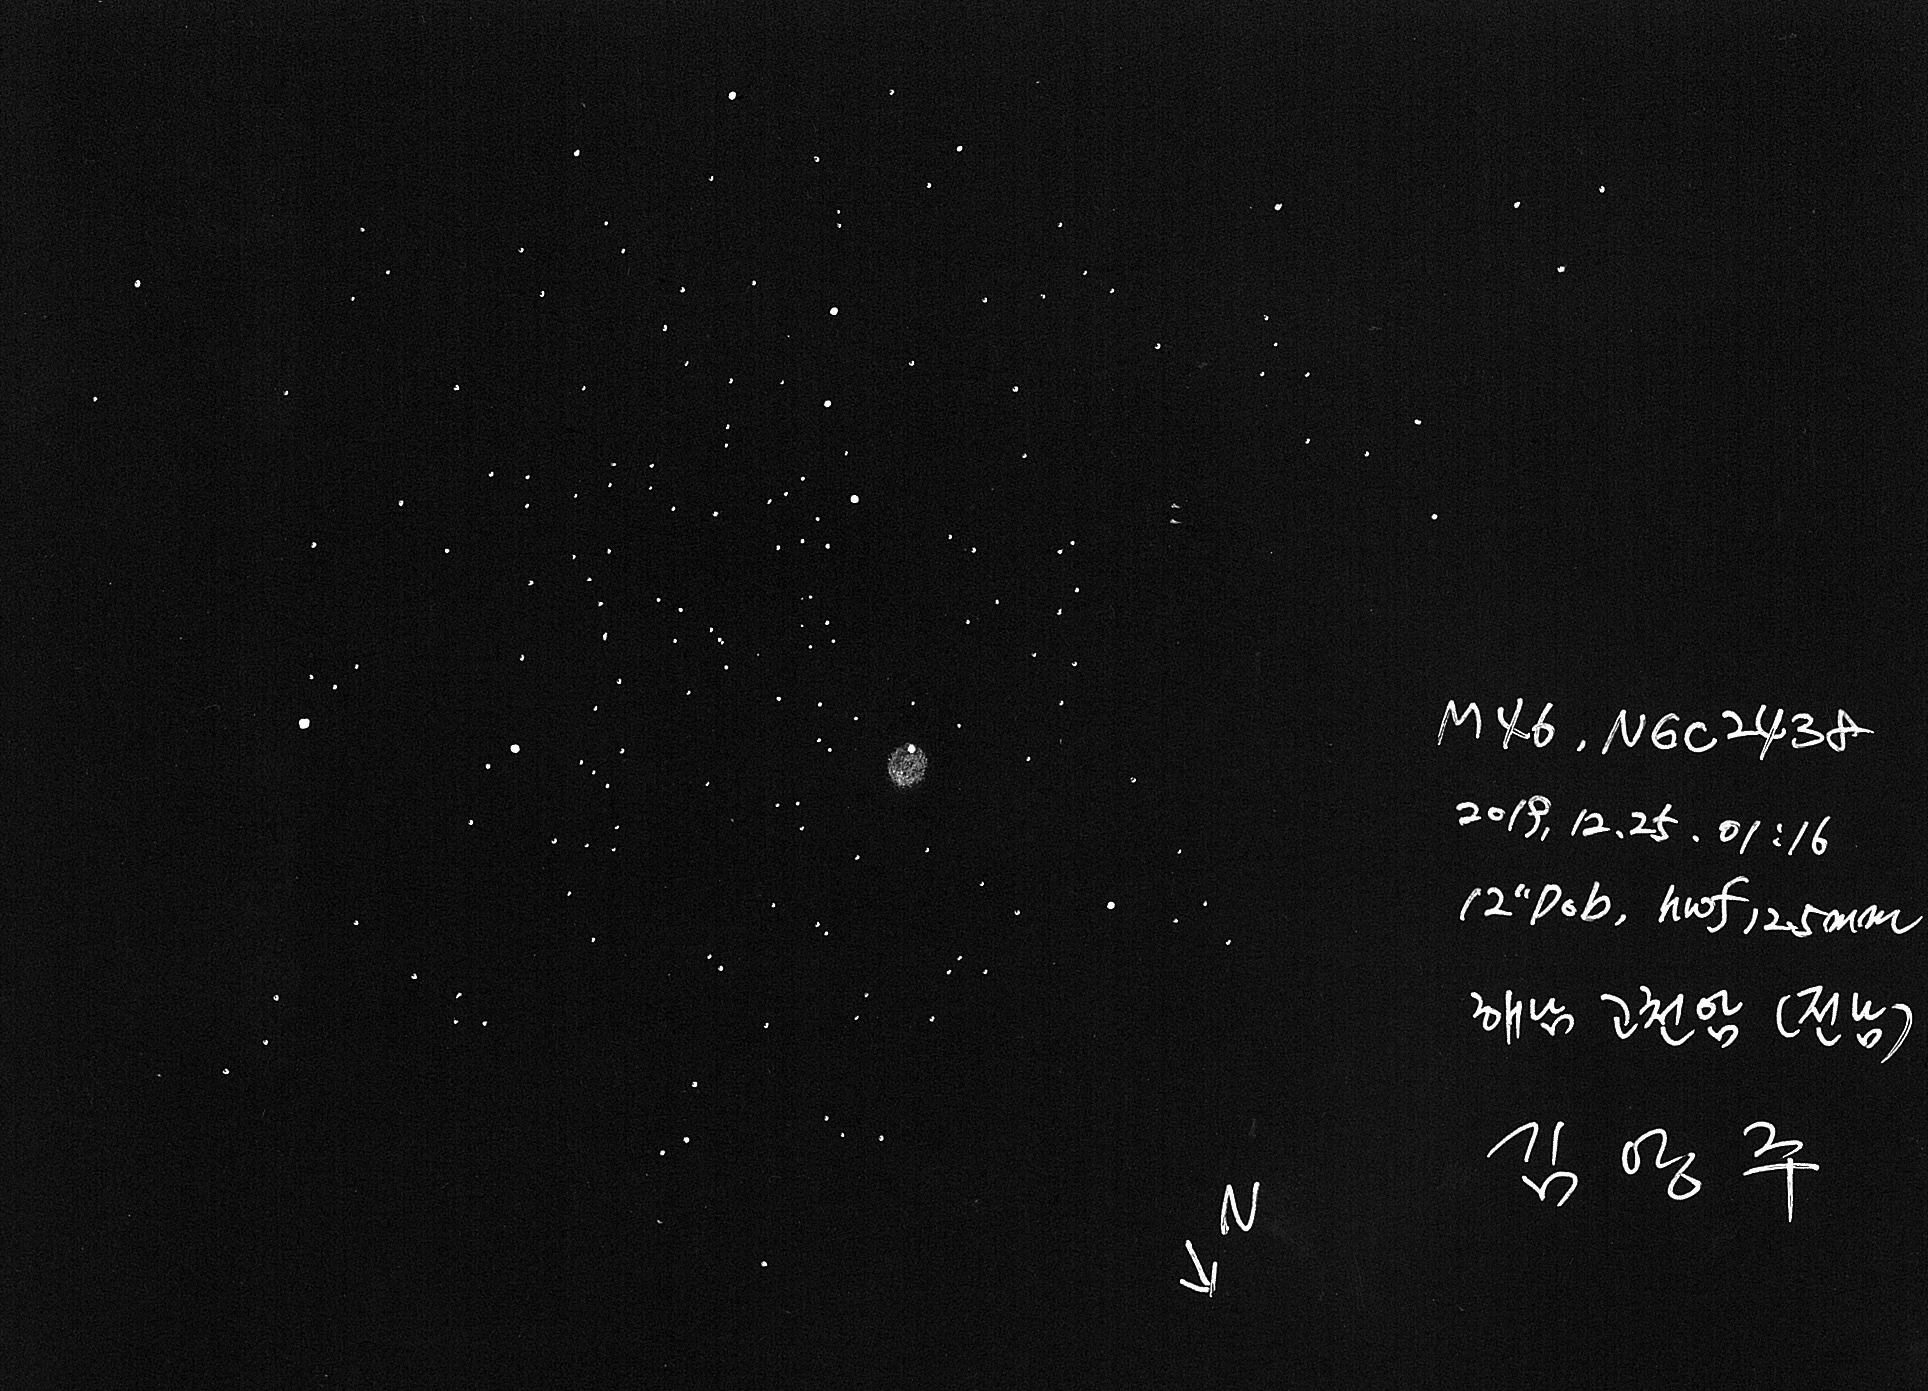 M46, NGC2438
2019. 12. 25. 01:16
12" Dob, hwf 12.5mm
해남 고천암 (전남)
김 영 주
N